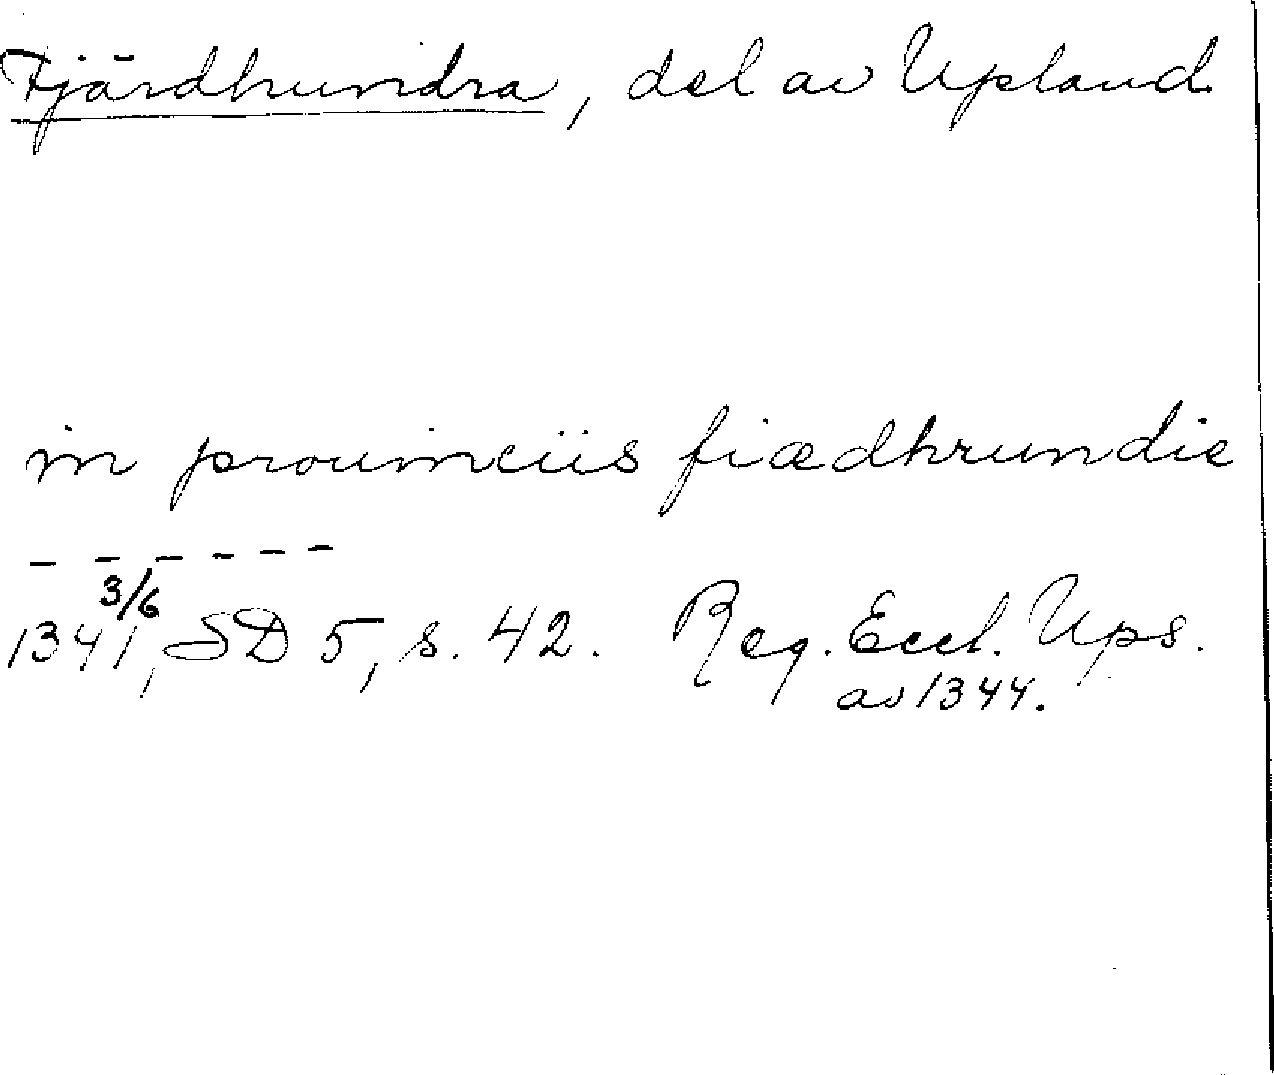 Fjärdhundra, del av Upland.
in prouinciis fiædhrundie
- - - - - -
1341 3/6, SD 5, s. 42. Reg. Eccl. Ups.
av 1344.